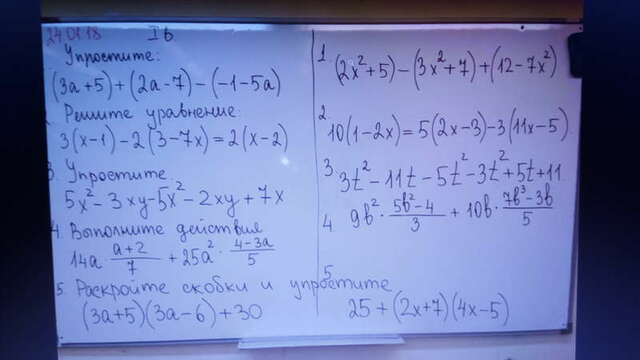 24.01.18 I в
Упростите:
(3a+5)+(2a-7)-(-1-5a)
Решите уравнение:
3(x-1)-2(3-7x)=2(x-2)
3. Упростите.
5x²-3xy-5x²-2xy+7x
4. Выполните действия
14a · (a+2)/7 + 25a² · (4-3a)/5
5. Раскройте скобки и упростите
(3a+5)(3a-6)+30
1. (2x²+5)-(3x²+7)+(12-7x²)
2. 10(1-2x)=5(2x-3)-3(11x-5).
3 3t²-11t-5t²-3t²+5t+11
4. 9b² · (5b²-4)/3 + 10b · (7b³-3b)/5
5
25+(2x+7)(4x-5)